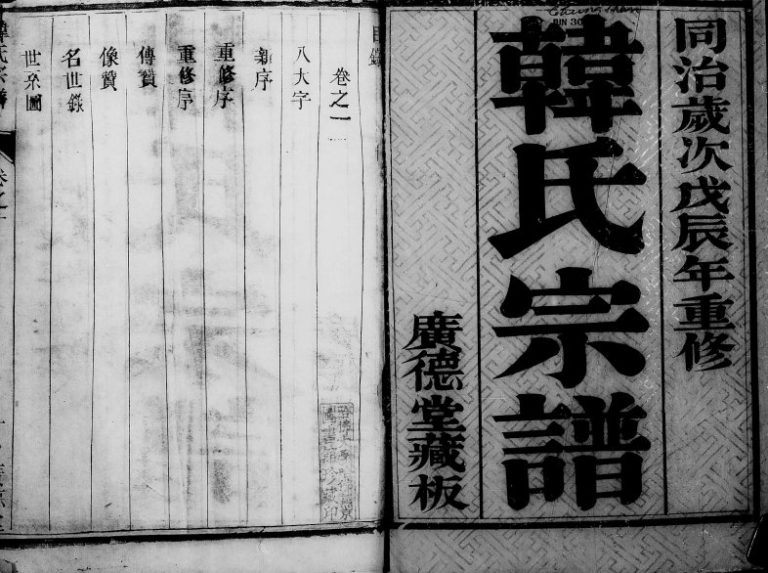 同治歲次戊辰年重修
韓氏宗譜
廣德堂藏板
目錄
卷之一
八大字
新序
重修序
重修序
傳贊
像贊
名世錄
世系圖
氏宗譜
卷之一